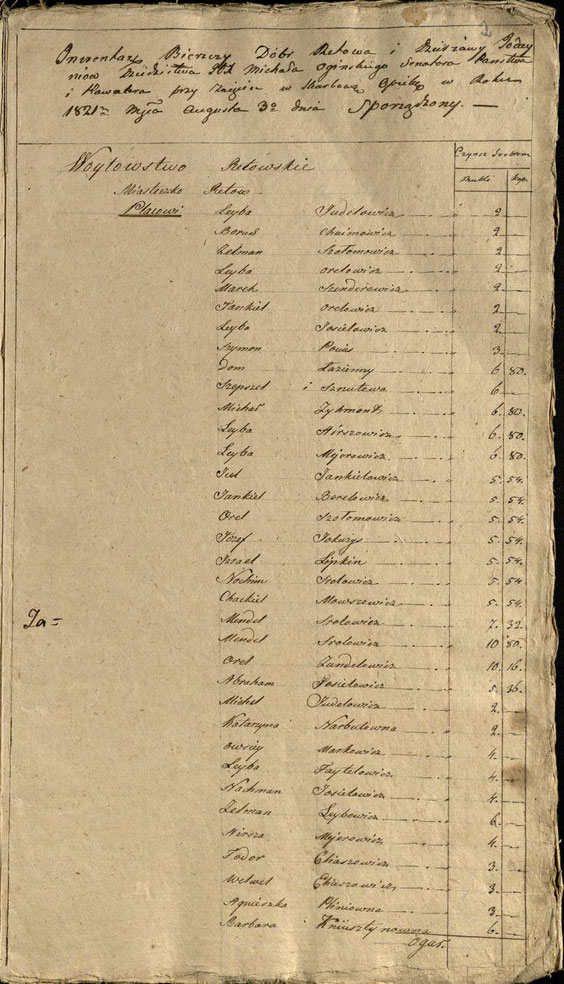 Inwentarz Bierczy Dóbr Retowa i Dzierżawy Podzy
niów Dziedzictwa JW Michała Ogińskiego Senatora Państwa
i Kawalera przy w Skarbową Opiekę w Roku
1821m Mca Augusta 3o dnia Sporządzony. —
Czynsz Srebrem
Ruble kop.
Woytowstwo Retowskie
Miasteczko Retow
Placowi
Leyba Judelowicz 2
Boruch Chaimowicz 2
Zelman Szołomowicz 2
Leyba Orelowicz 2
Marek Szinderowicz 2
Jankiel Orelowicz 2
Leyba Josielowicz 2
Szymon 3
Dom Łazienny 6 80.
Szepszel i Szmulowa 6
Michał Zykmont 6. 80.
Leyba Hirszowicz 6. 80
Leyba Mejerowicz 6 80
Icel Jankielowicz 5. 54.
Jankiel Berelowicz 5. 54
Orel Szołomowicz 5. 54
Józef 5. 54.
Izrael Lipkin 5. 54.
Nochim Srolowicz 5. 54
Chackiel Mowszowicz 5. 54.
Mendel Srolowicz 7. 32.
Mendel Srolowicz 10 80.
Orel Zundelowicz 10. 16.
Abraham Josielowicz 5. 26.
Michel Judelowicz 2.
Katarzyna Narbutowna 2
Owsiey Markowicz 4.
Leyba Faytelowicz 4.
Nachman Josielowicz 4.
Zelman Leybowicz 6.
Hirsza Mejerowicz 4.
Todor Eliaszewicz 3.
Welwel Eliaszewicz 3
Agnieszka 3.
Barbara 6.
Ja=